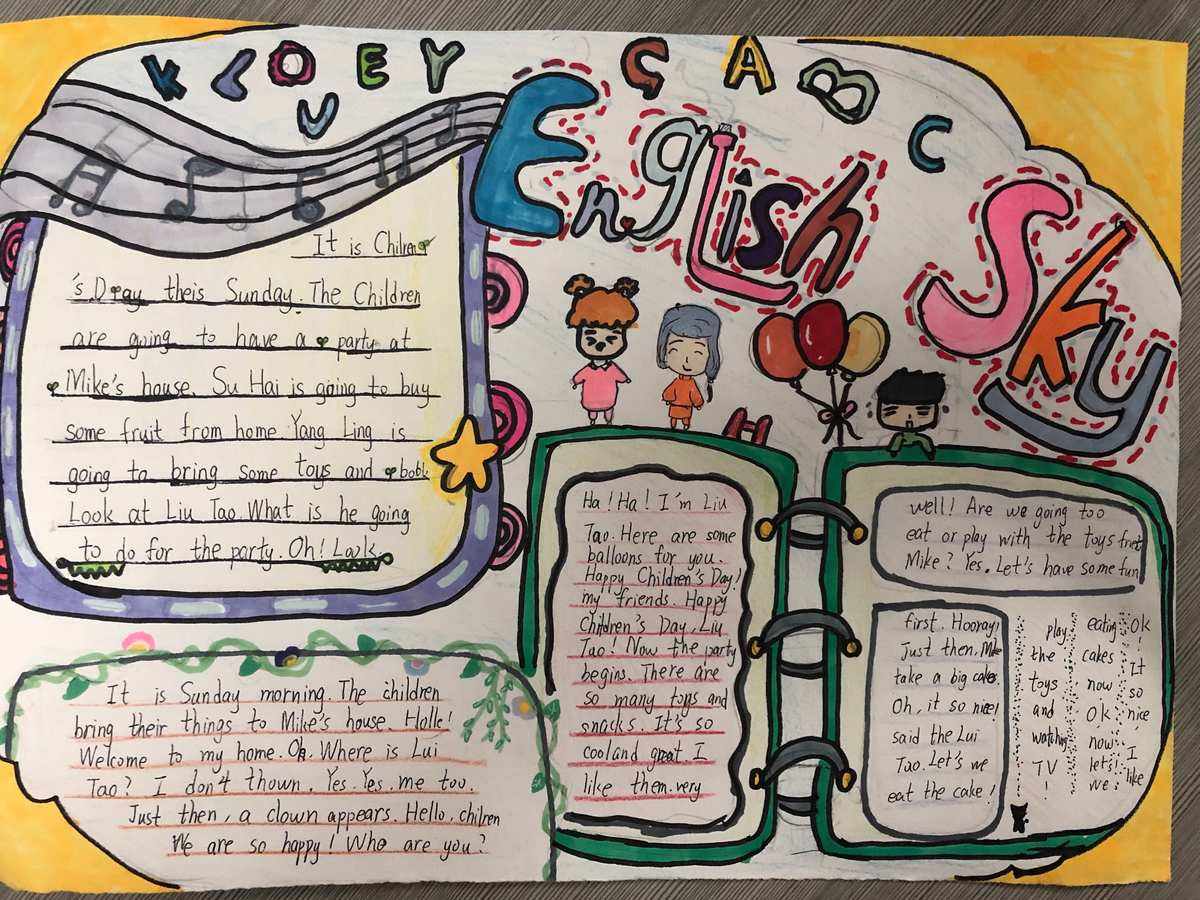 K L O V E Y G A B C
English Sky
It is Chilren
's Dray theis Sunday. The Children
are going to have a party at
Mike's house. Su Hai is going to buy
some fruit from home Yang Ling is
going to bring some toys and
Look at Liu Tao What is he going
to do for the party. Oh! Look
It is Sunday morning. The children
bring their things to Mike's house. Holle!
Welcome to my home. Oh. Where is Lui
Tao? I don't thown. Yes. Yes. me too.
Just then, a clown appears. Hello, chilren
We are so happy! Who are you?
H
Ha! Ha! I'm Liu
Tao. Here are some
balloons for you.
Happy Children's Day!
my friends. Happy
Children's Day, Liu
Tao! Now the party
begins. There are
so many toys and
snacks. It's so
cooland great. I
like them very
well! Are we going too
eat or play with the toys
Mike? Yes. Let's have some fun
first. Hooray!
Just then, Mike
take a big cake.
Oh, it so nice!
said the Lui
Tao. Let's we
eat the cake!
play
the
toys
and
watching
TV
!
eating
cakes
now
Ok
now
let's
we
Ok
!
It
so
nice
,
I
like